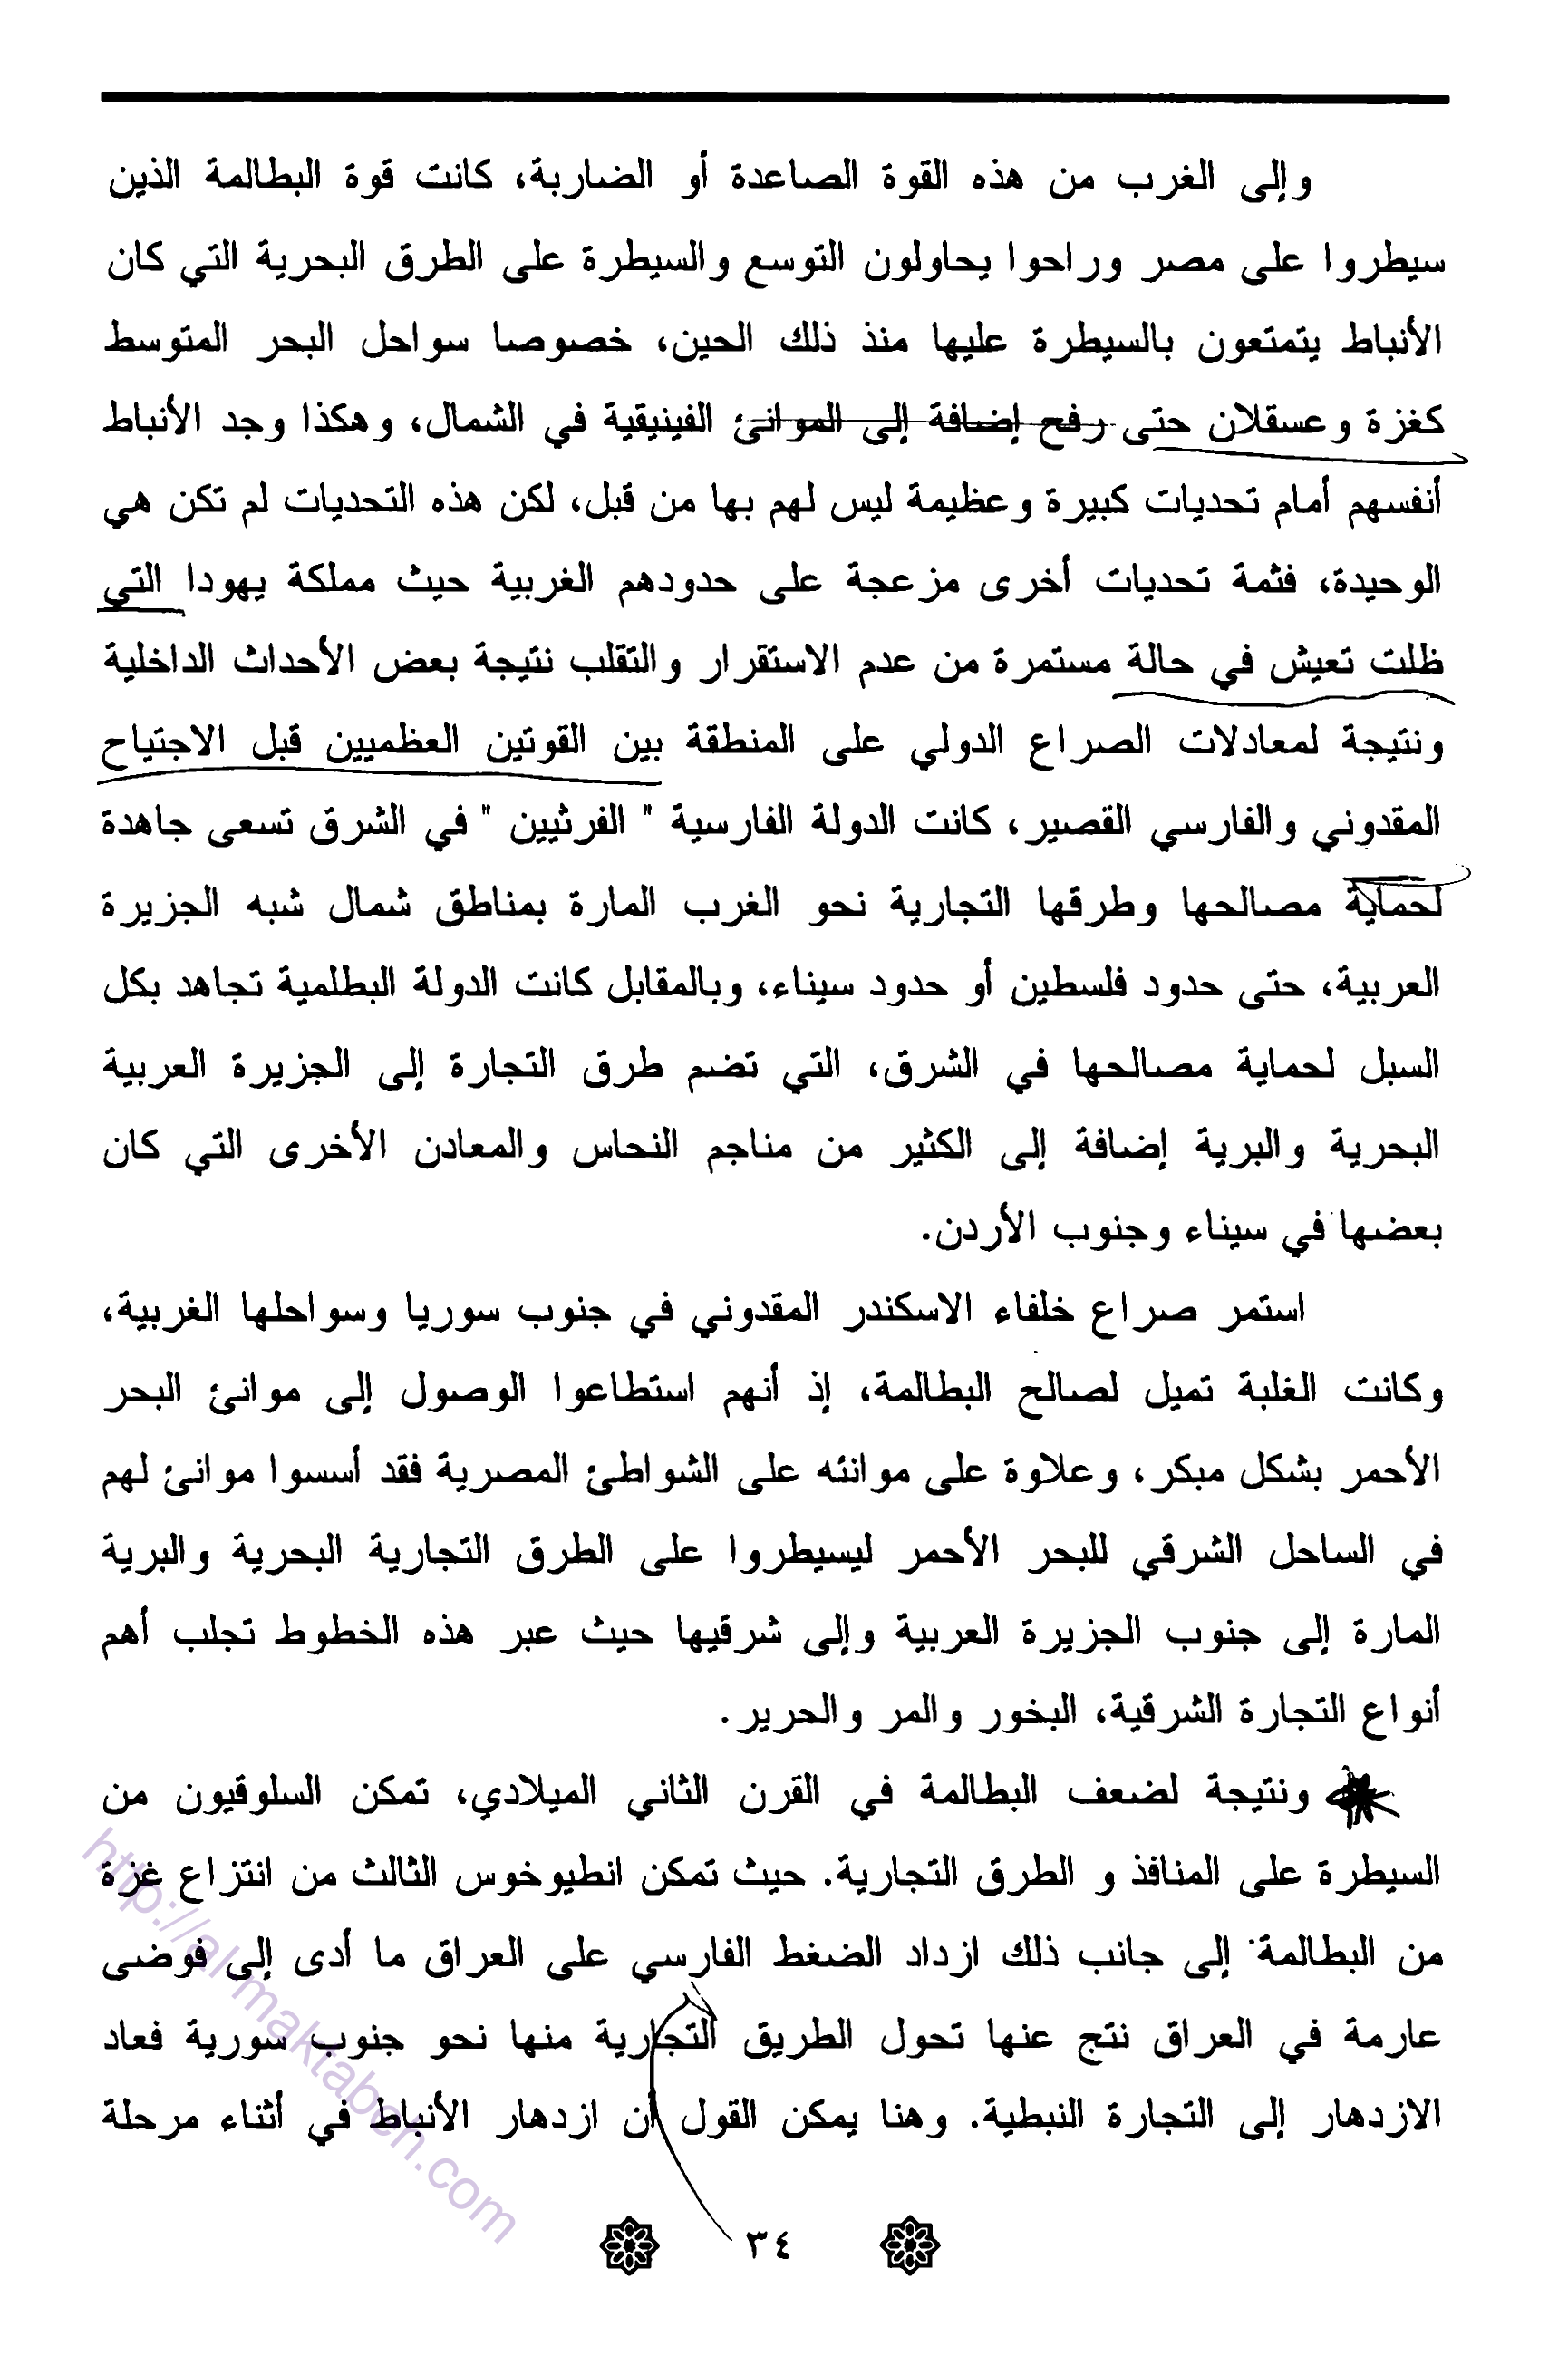 وإلى الغرب من هذه القوة الصاعدة أو الضاربة، كانت قوة البطالمة الذين
سيطروا على مصر وراحوا يحاولون التوسع والسيطرة على الطرق البحرية التي كان
الأنباط يتمتعون بالسيطرة عليها منذ ذلك الحين، خصوصا سواحل البحر المتوسط
كغزة وعسقلان حتى رفح إضافة إلى الموانئ الفينيقية في الشمال، وهكذا وجد الأنباط
أنفسهم أمام تحديات كبيرة وعظيمة ليس لهم بها من قبل، لكن هذه التحديات لم تكن هي
الوحيدة، فثمة تحديات أخرى مزعجة على حدودهم الغربية حيث مملكة يهودا التي
ظلت تعيش في حالة مستمرة من عدم الاستقرار والتقلب نتيجة بعض الأحداث الداخلية
ونتيجة لمعادلات الصراع الدولي على المنطقة بين القوتين العظميين قبل الاجتياح
المقدوني والفارسي القصير، كانت الدولة الفارسية " الفرثيين " في الشرق تسعى جاهدة
لحماية مصالحها وطرقها التجارية نحو الغرب المارة بمناطق شمال شبه الجزيرة
العربية، حتى حدود فلسطين أو حدود سيناء، وبالمقابل كانت الدولة البطلمية تجاهد بكل
السبل لحماية مصالحها في الشرق، التي تضم طرق التجارة إلى الجزيرة العربية
البحرية والبرية إضافة إلى الكثير من مناجم النحاس والمعادن الأخرى التي كان
بعضها في سيناء وجنوب الأردن.
استمر صراع خلفاء الاسكندر المقدوني في جنوب سوريا وسواحلها الغربية،
وكانت الغلبة تميل لصالح البطالمة، إذ أنهم استطاعوا الوصول إلى موانئ البحر
الأحمر بشكل مبكر، وعلاوة على موانئه على الشواطئ المصرية فقد أسسوا موانئ لهم
في الساحل الشرقي للبحر الأحمر ليسيطروا على الطرق التجارية البحرية والبرية
المارة إلى جنوب الجزيرة العربية وإلى شرقيها حيث عبر هذه الخطوط تجلب أهم
أنواع التجارة الشرقية، البخور والمر والحرير.
ونتيجة لضعف البطالمة في القرن الثاني الميلادي، تمكن السلوقيون من
السيطرة على المنافذ و الطرق التجارية. حيث تمكن انطيوخوس الثالث من انتزاع غزة
من البطالمة إلى جانب ذلك ازداد الضغط الفارسي على العراق ما أدى إلى فوضى
عارمة في العراق نتج عنها تحول الطريق التجارية منها نحو جنوب سورية فعاد
الازدهار إلى التجارة النبطية. وهنا يمكن القول أن ازدهار الأنباط في أثناء مرحلة
٣٤
http://al-maktabeh.com